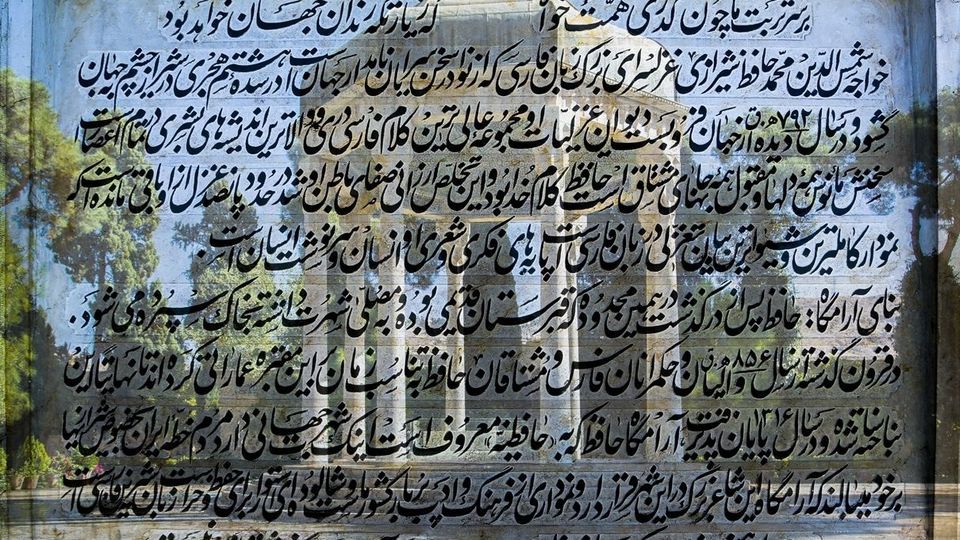 بر سر تربت ما چون گذری همت خواه که زیارتگه رندان جهان خواهد بود
خواجه شمس الدین محمد حافظ شیرازی غزلسرای بزرگ زبان فارسی که از نوادر سخن سرایان نامدار جهان است در سده هشتم هجری در شیراز چشم به جهان
گشود و در سال ۷۹۲ ه.ق دیده از جهان فروبست دیوان غزلیات او مجموعه عالی ترین کلام فارسی در والاترین اندیشه های بشری در تمام اعصار است
سخنش مانوس همه دلها و مقبول همه جانهای مشتاق است حافظ کلام خدا بود و این تخلص ارزانی صفای باطن او شد در حدود پانصد غزل از او باقی مانده است که
نمودار کاملترین و شیواترین بیان تغزلی زبان فارسی است پایه های فکری و شعری او انسان و سرنوشت انسان است.
بنای آرامگاه: حافظ پس از درگذشت در همین محدوده که قبرستان قدیمی بوده و به مصلی شهرت داشته بخاک سپرده می شود.
در قرون گذشته از سال ۸۵۶ ه.ق والیان و حکمرانان فارس و مشتاقان حافظ به تناسب زمان بر این مقبره عماراتی کرده اند تا نهایتا این
بنا ساخته شده و در سال ۱۳۱۶ پایان پذیرفت آرامگاه حافظ که به «حافظیه» معروف است اینک شهرت جهانی دارد مردم خطه ایران بخصوص شیرازیها
بر خود میبالند که آرامگاه این شاعر بزرگ در این شهر قرار دارد و نمودار از فرهنگ و ادب پربار کشور ماست و شالوده ای استوار برای حفظ و حراست زبان شیرین فارسی است